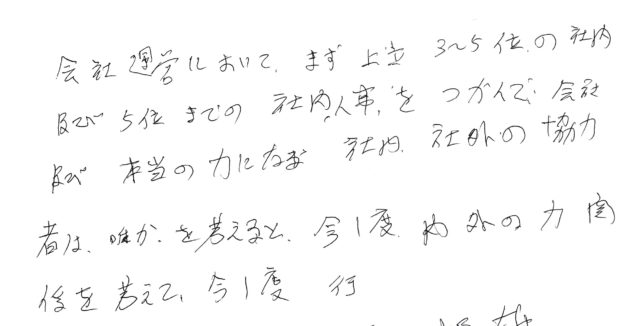 会社運営において、まず上位3~5位の社内
及び5位までの社内人事、をつかんで会社
及び本当の力になる社内、社外の協力
者は、唯か、を考えると、今1度、内外の力関
係を考えて、今1度 行